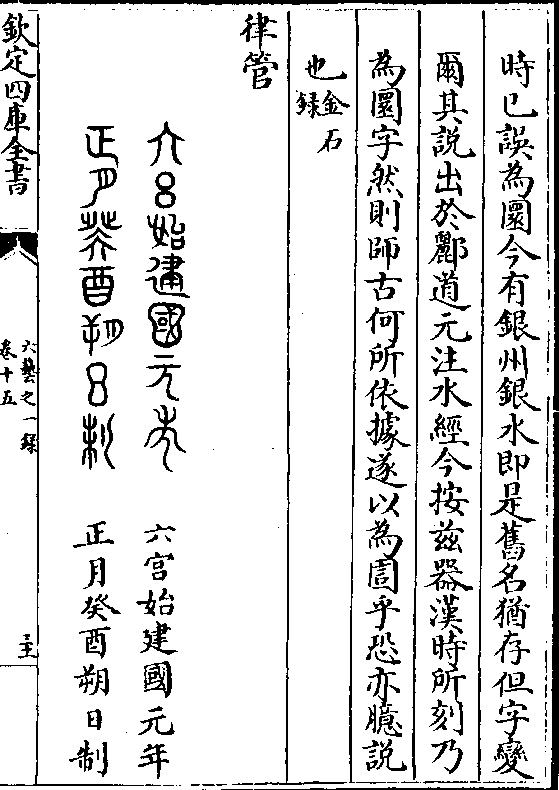 時已誤為圜今有銀州銀水即是舊名猶存但字變
爾其說出於酈道元注水經今按茲器漢時所刻乃
為圜字然則師古何所依據遂以為圁乎恐亦臆說
也金石
録
律管
六始建國元年 六宫始建國元年
正月癸酉朔日制 正月癸酉朔日制
欽定四庫全書
六藝之一録
卷十五